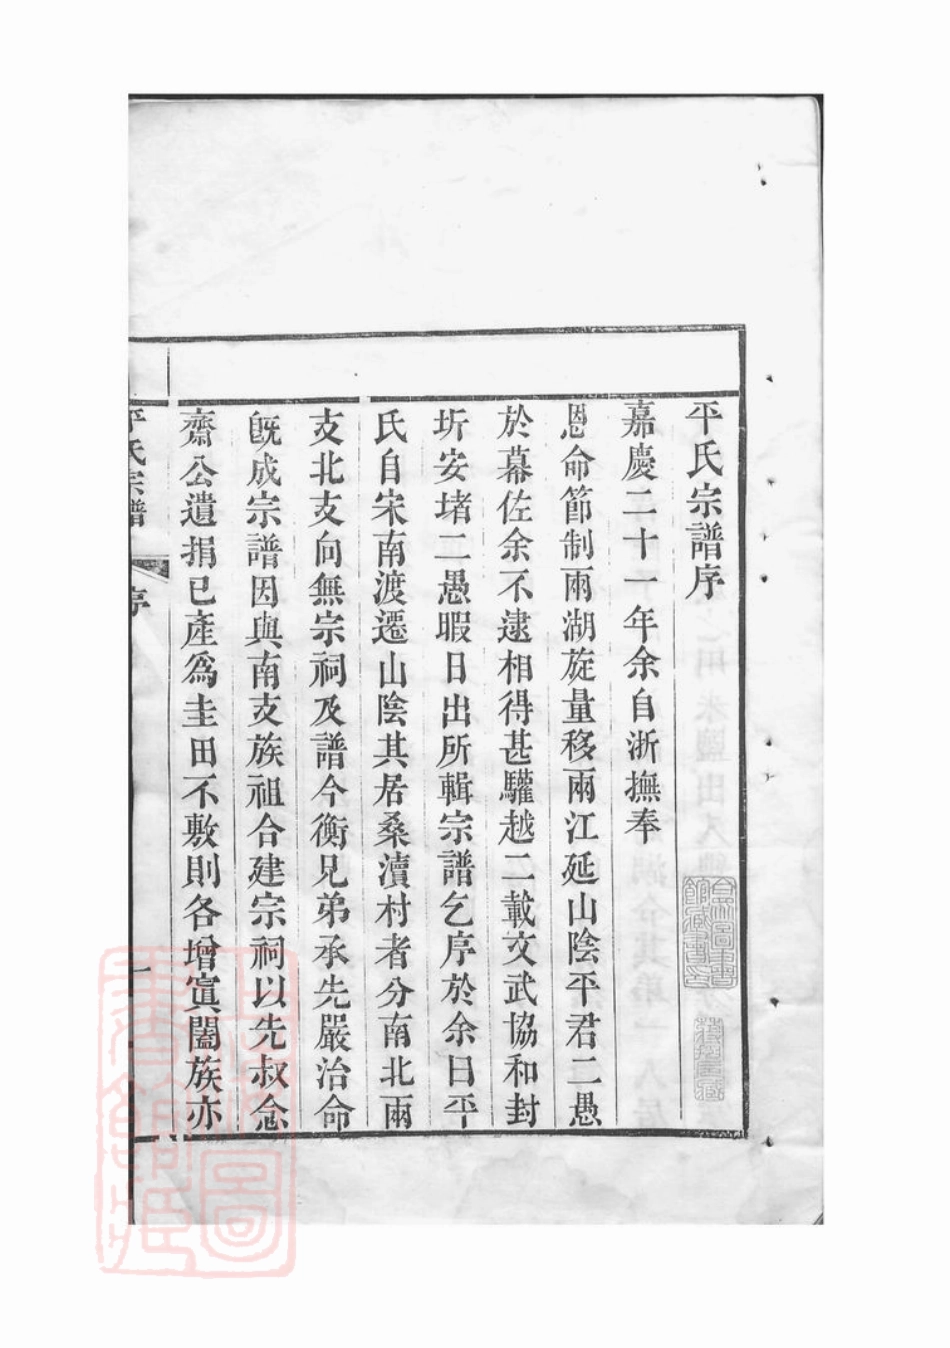 平氏宗譜序
嘉慶二十一年余自浙撫奉
恩命節制兩湖旋量移兩江延山陰平君二愚
於幕佐余不逮相得甚驩越二載文武協和封
圻安堵二愚暇日出所輯宗譜乞序於余曰平
氏自宋南渡遷山陰其居桑瀆村者分南北兩
支北支向無宗祠及譜今衡兄弟承先嚴治命
旣成宗譜因與南支族祖合建宗祠以先叔念
齋公遺捐已產爲圭田不敷則各增寘闔族亦
平氏宗譜
序
一